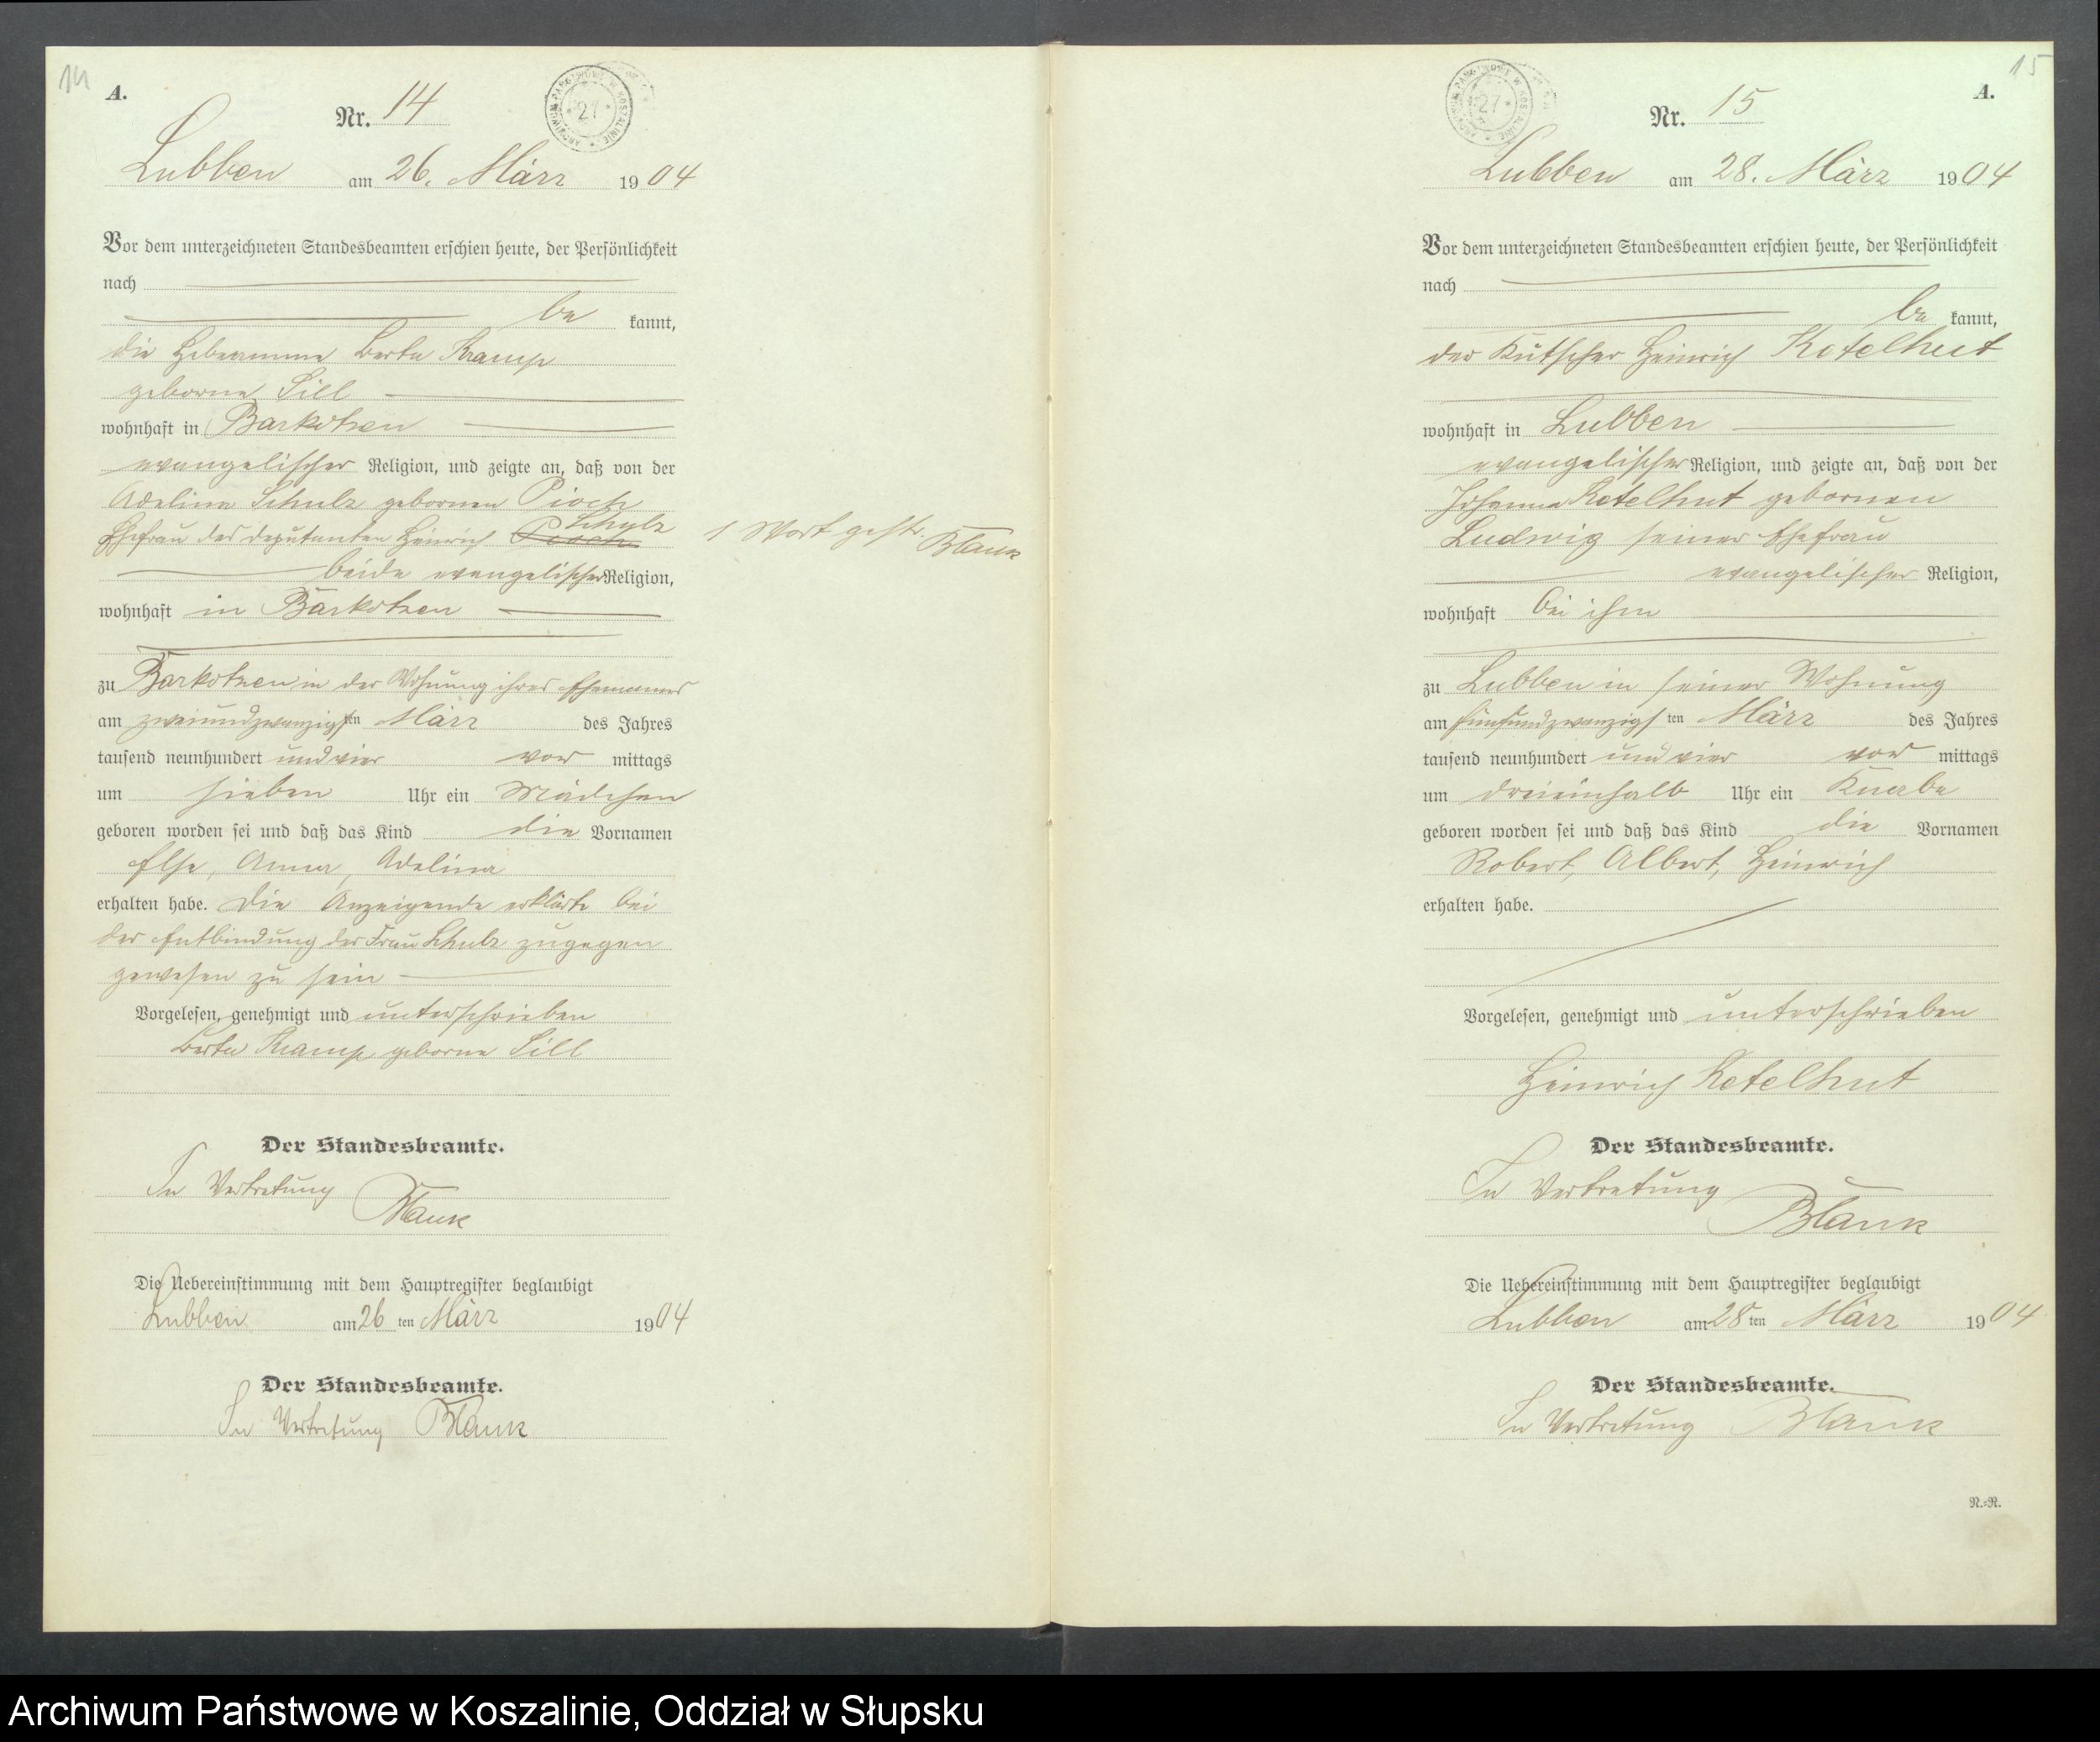 14
A.
Nr. 14
ARCHIWUM PAŃSTWOWE W KOSZALINIE
* 27 *
Lubben am 26. März 1904
Vor dem unterzeichneten Standesbeamten erschien heute, der Persönlichkeit
nach
be kannt,
die Hebeamme Berta Kramp
geborne Sill
wohnhaft in Barkotzen
evangelischer Religion, und zeigte an, daß von der
Adeline Schulz gebornen Pioch
Schulz
Ehefrau des Deputanten Heinrich Pioch
1 Wort gestr. Blank
beide evangelischer Religion,
wohnhaft in Barkotzen
zu Barkotzen in der Wohnung ihres Ehemannes
am zweiundzwanzigsten März des Jahres
tausend neunhundert und vier vor mittags
um sieben Uhr ein Mädchen
geboren worden sei und daß das Kind die Vornamen
Else, Anna, Adeline
erhalten habe. Die Anzeigende erklärte bei
der Entbindung der Frau Schulz zugegen
gewesen zu sein
Vorgelesen, genehmigt und unterschrieben
Berta Kramp geborne Sill
Der Standesbeamte.
In Vertretung
Blank
Die Uebereinstimmung mit dem Hauptregister beglaubigt
Lubben am 26 ten März 1904
Der Standesbeamte.
In Vertretung Blank
15
A.
Nr. 15
ARCHIWUM PAŃSTWOWE W KOSZALINIE
* 27 *
Lubben am 28. März 1904
Vor dem unterzeichneten Standesbeamten erschien heute, der Persönlichkeit
nach
be kannt,
der Kutscher Heinrich Ketelhut
wohnhaft in Lubben
evangelischer Religion, und zeigte an, daß von der
Johanna Ketelhut gebornen
Ludwig seiner Ehefrau
evangelischer Religion,
wohnhaft bei ihm
zu Lubben in seiner Wohnung
am fünfundzwanzigsten März des Jahres
tausend neunhundert und vier vor mittags
um dreieinhalb Uhr ein Knabe
geboren worden sei und daß das Kind die Vornamen
Robert, Albert, Heinrich
erhalten habe.
Vorgelesen, genehmigt und unterschrieben
Heinrich Ketelhut
Der Standesbeamte.
In Vertretung
Blank
Die Uebereinstimmung mit dem Hauptregister beglaubigt
Lubben am 28 ten März 1904
Der Standesbeamte.
In Vertretung Blank
N.=R.
Archiwum Państwowe w Koszalinie, Oddział w Słupsku